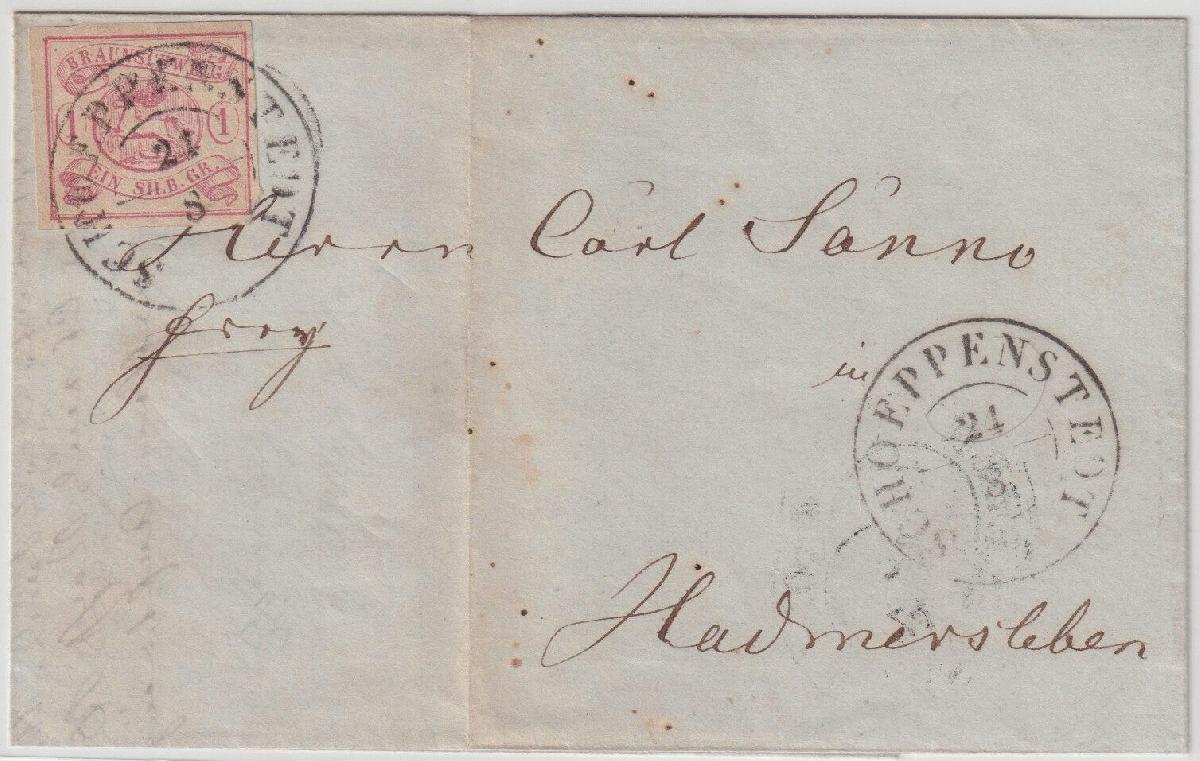 BRAUNSCHWEIG
1 1
EIN SILB. GR.
SCHOEPPENSTEDT
21
Herrn Carl Sänno
frey
in
SCHOEPPENSTEDT
21
Hadmersleben